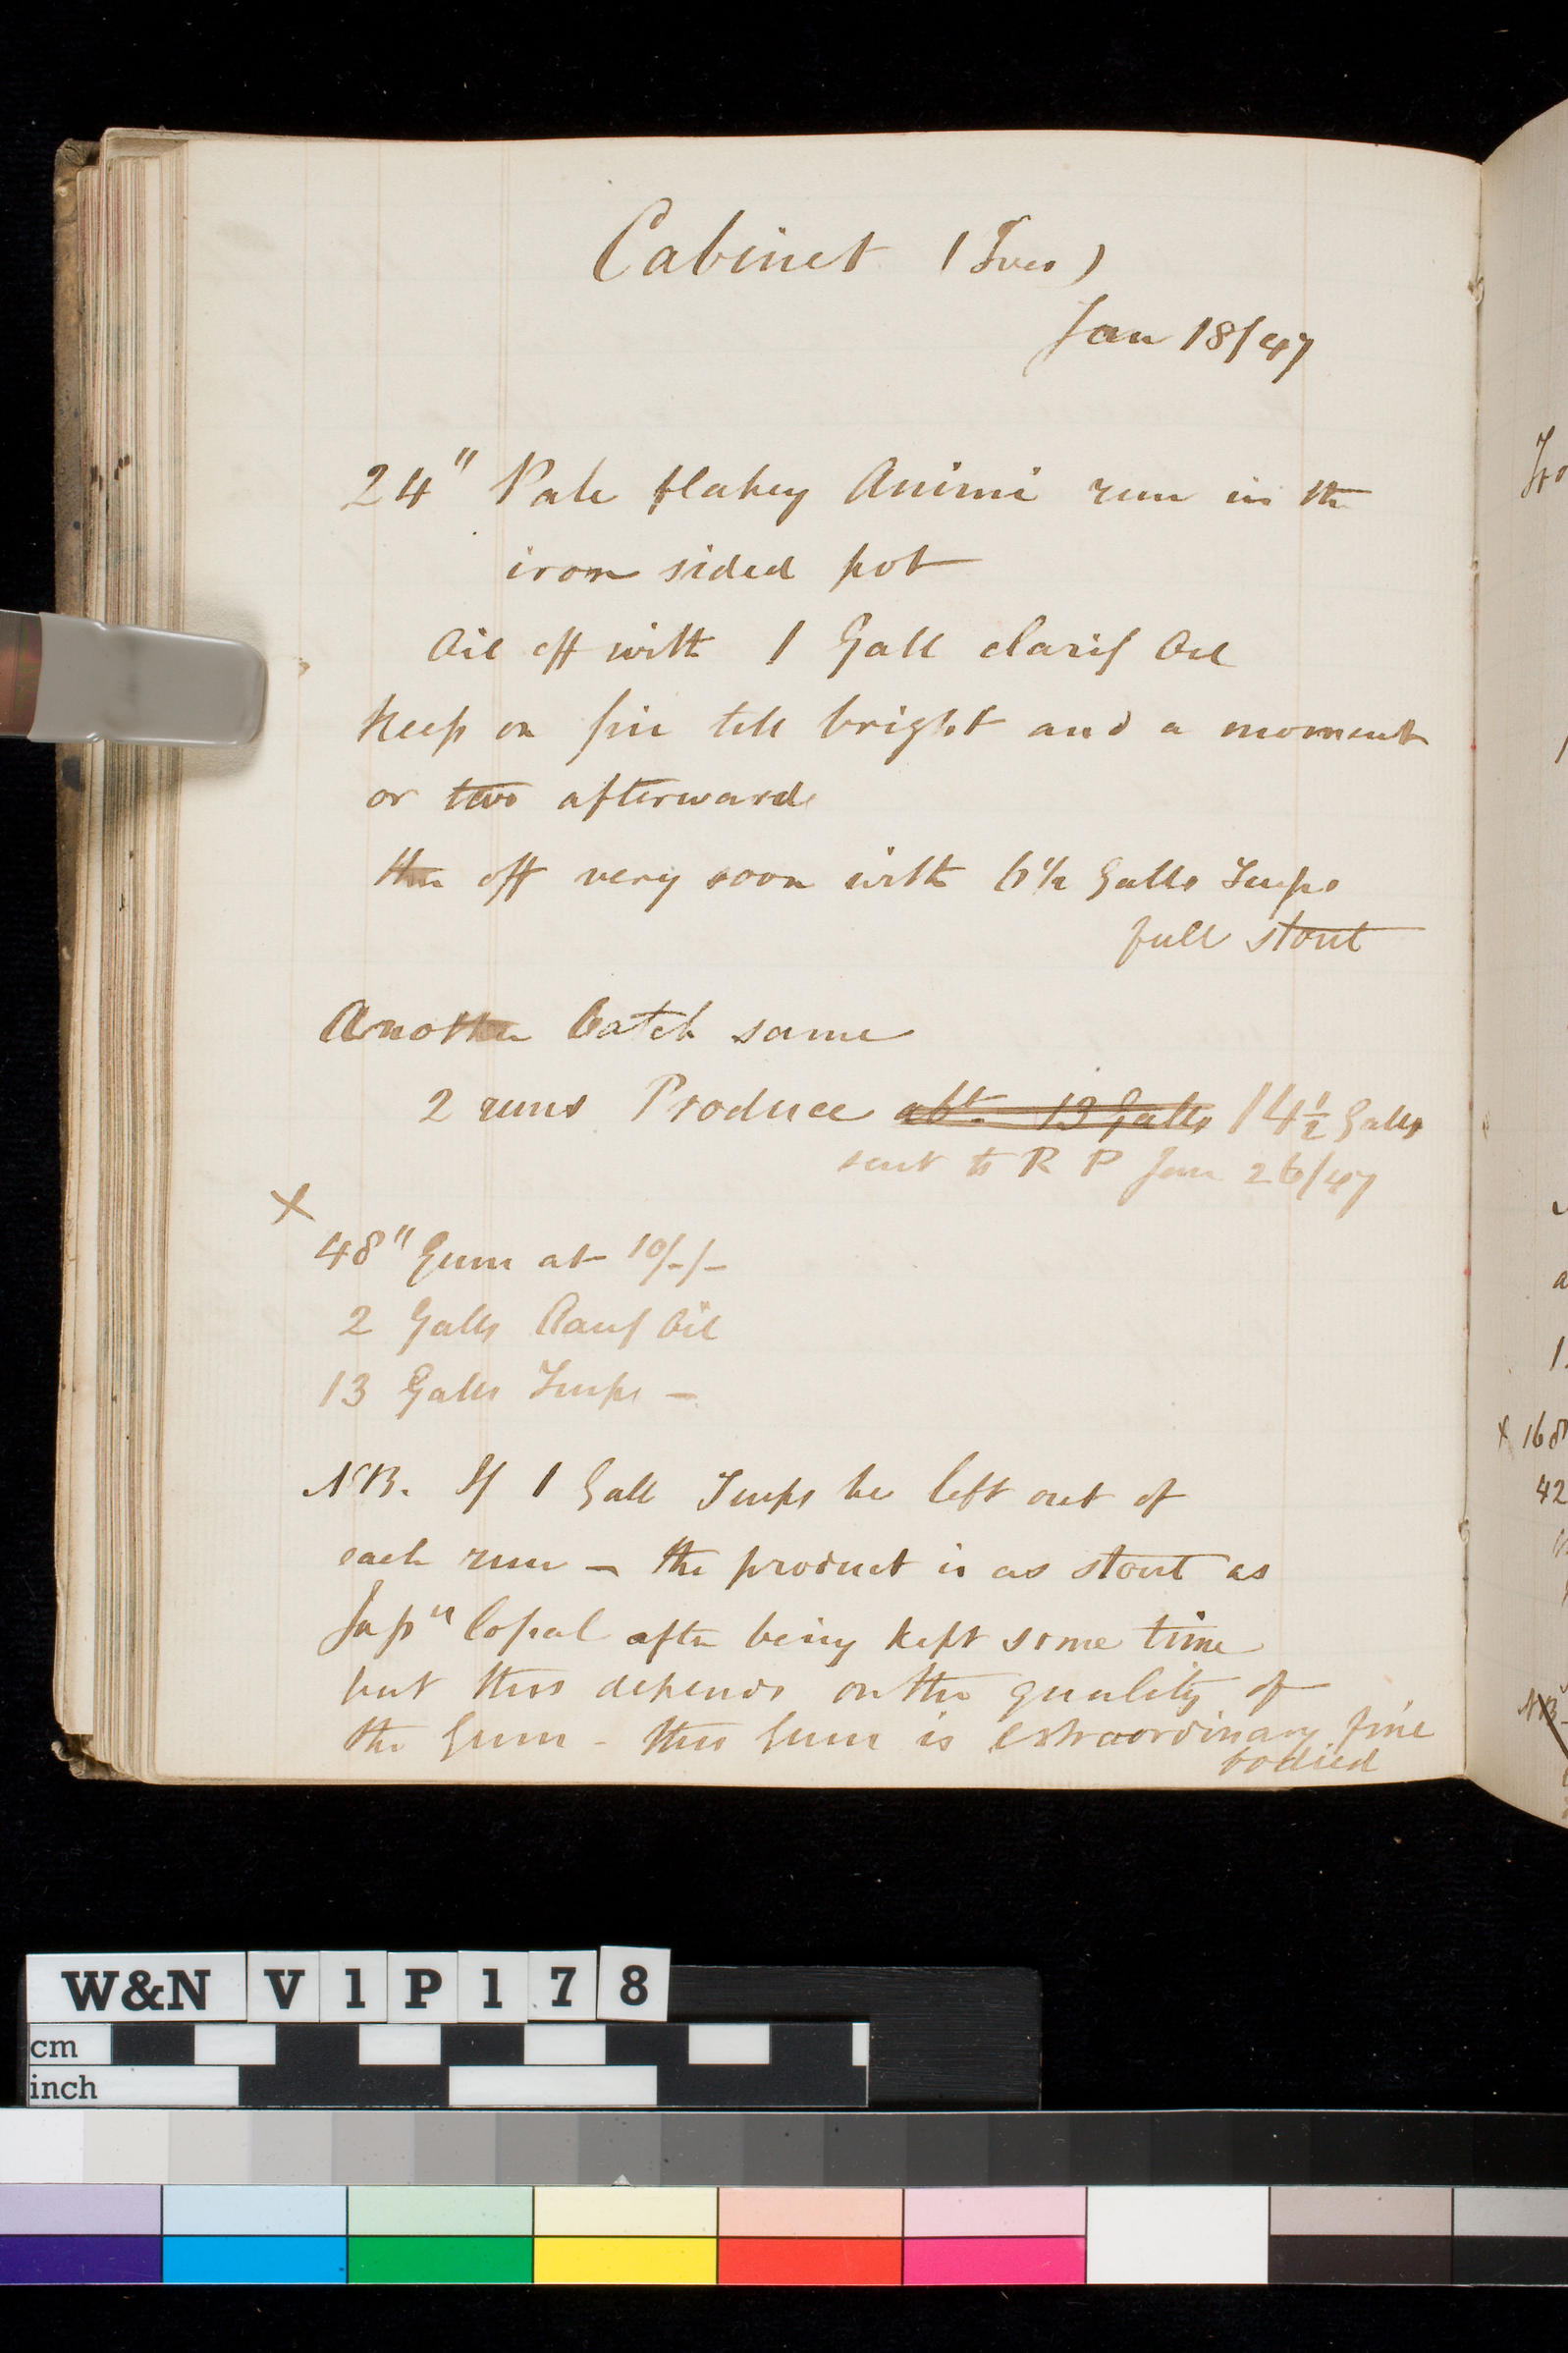 Cabinet (Ives)
Jan 18/47
24" Pale flakey Animi run in the
iron sided pot
Oil off with 1 Gall clarif Oil
Keep on fire till bright and a moment
or two afterwards
then off very soon with 6½ Galls Turps
full stout
Another batch same
2 runs Produce abt. 13 Galls 14½ Galls
sent to R P Jan 26/47
X
48" Gum at 10/-/-
2 Galls Clarif Oil
13 Galls Turps –
NB. If 1 Gall Turps be left out of
each run – the product is as stout as
Japn Copal after being kept some time
but this depends on the quality of
the Gum – this Gum is extraordinary fine
bodied
x 168
42
NB
W&N V1P178
cm
inch